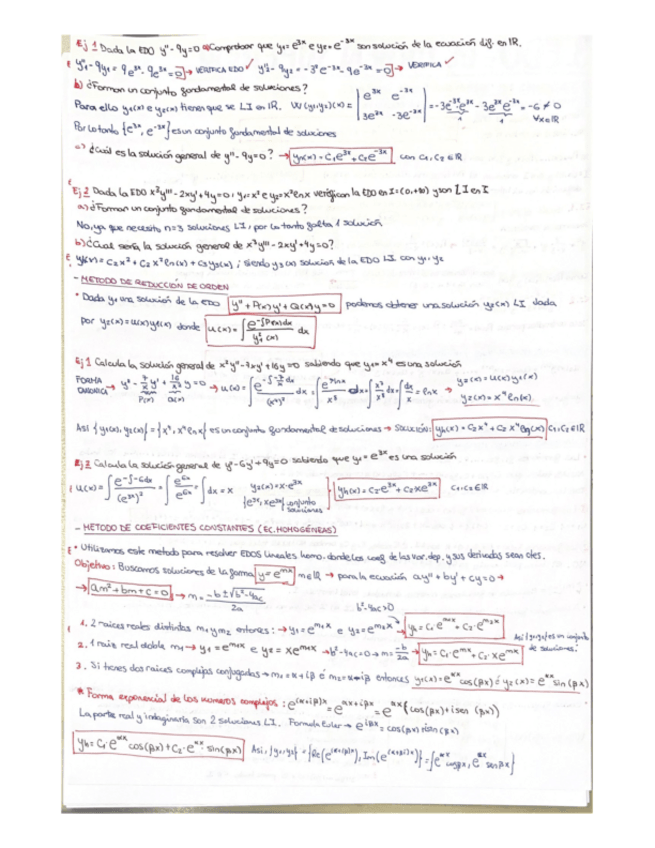 Ej 1 Dada la EDO y''-9y=0 a) Comprobar que y₁=e^{3x} e y₂=e^{-3x} son solución de la ecuación dif. en IR.
y₁''-9y₁= 9e^{3x}-9e^{3x}=0 → VERIFICA EDO ✓ y₂''-9y₂ = -3²e^{-3x}-9e^{-3x}=0 → VERIFICA ✓
b) ¿Forman un conjunto fundamental de soluciones?
Para ello y₁(x) e y₂(x) tienen que se LI en IR. W(y₁,y₂)(x)= |e^{3x} e^{-3x} 3e^{3x} -3e^{-3x}| = -3e^{-3x}·e^{3x} -3e^{3x}e^{-3x} = -6 ≠ 0 ∀x∈IR
Por lo tanto {e^{3x}, e^{-3x}} es un conjunto fundamental de soluciones
c) ¿Cuál es la solución general de y''-9y=0? → y_h(x)= C₁e^{3x}+C₂e^{-3x} con C₁, C₂ ∈ IR
Ej 2 Dada la EDO x²y'''-2xy'+4y=0, y₁=x² e y₂=x²lnx verifican la EDO en I=(0,+∞) y son LI en I
a) ¿Forman un conjunto fundamental de soluciones?
No, ya que necesito n=3 soluciones LI, por lo tanto falta 1 solución
b) ¿Cuál sería la solución general de x²y'''-2xy'+4y=0?
y_h(x)= C₁x² + C₂x²ln(x) + C₃y₃(x); siendo y₃(x) solución de la EDO LI con y₁, y₂
- METODO DE REDUCCIÓN DE ORDEN
• Dada y₁ una solución de la EDO y''+P(x)y'+Q(x)y=0 podemos obtener una solución y₂(x) LI dada
por y₂(x)=u(x)y₁(x) donde u(x)=∫ e^{-∫P(x)dx} / y₁²(x) dx
Ej 1 Calcula la solución general de x²y''-7xy'+16y=0 sabiendo que y₁=x⁴ es una solución
FORMA CANONICA → y''-7/x y'+16/x² y=0 → u(x)=∫ e^{-∫-7/x dx}/(x⁴)² dx = ∫ e^{7lnx}/x⁸ dx = ∫ x⁷/x⁸ dx = ∫ dx/x = lnx → y₂(x)=u(x)y₁(x)
P(x) Q(x) y₂(x)= x⁴ln(x).
Asi {y₁(x), y₂(x)} = {x⁴, x⁴lnx} es un conjunto fundamental de soluciones → SOLUCIÓN: y_h(x)= C₁x⁴ + C₂x⁴log(x) C₁, C₂ ∈ IR
Ej 2 Calcula la solución general de y''-6y'+9y=0 sabiendo que y₁=e^{3x} es una solución
u(x)=∫ e^{-∫-6dx}/(e^{3x})² = ∫ e^{6x}/e^{6x} = ∫dx = x y₂(x)=x·e^{3x} y_h(x)=C₁e^{3x}+C₂xe^{3x} C₁, C₂ ∈ IR
{e^{3x}, xe^{3x}} conjunto soluciones
- METODO DE COEFICIENTES CONSTANTES (EC. HOMOGÉNEAS)
• Utilizamos este metodo para resolver EDOS lineales homo. donde los coef de las var. dep. y sus derivadas sean ctes.
Objetivo: Buscamos soluciones de la forma y=e^{mx} m∈IR → para la ecuación ay''+by'+cy=0 →
→ am²+bm+c=0 → m= -b±√(b²-4ac) / 2a
b²-4ac>0
1. 2 raices reales distintas m₁ y m₂ entonces: → y₁=e^{m₁x} e y₂=e^{m₂x} → y_h=C₁·e^{m₁x}+C₂·e^{m₂x}
2. 1 raiz real doble m₁ → y₁=e^{m₁x} e y₂=xe^{m₁x} → b²-4ac=0 → m=-b/2a → y_h=C₁·e^{mx}+C₂·xe^{mx}
de soluciones:
3. Si tienes dos raices complejas conjugadas → m₁=α+iβ ó m₂=α-iβ entonces y₁(x)=e^{αx}cos(βx) é y₂(x)=e^{αx}sin(βx)
* Forma exponencial de los numeros complejos: e^{(α+iβ)x}=e^{αx+iβx}=e^{αx}(cos(βx)+isen(βx))
La parte real y imaginaria son 2 soluciones LI. Formula Euler → e^{iβx}=cos(βx)+isin(βx)
y_h=C₁·e^{αx}cos(βx)+C₂·e^{αx}·sin(βx) Asi, {y₁,y₂}={Re(e^{(α+iβ)x}), Im(e^{(α+iβ)x})}={e^{αx}cosβx, e^{αx}senβx}